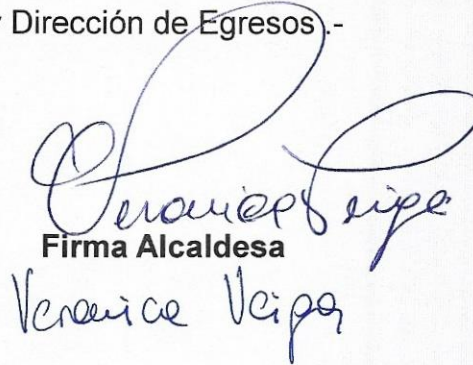 y Dirección de Egresos.-
Veronica Veiga
Firma Alcaldesa
Veronica Veiga